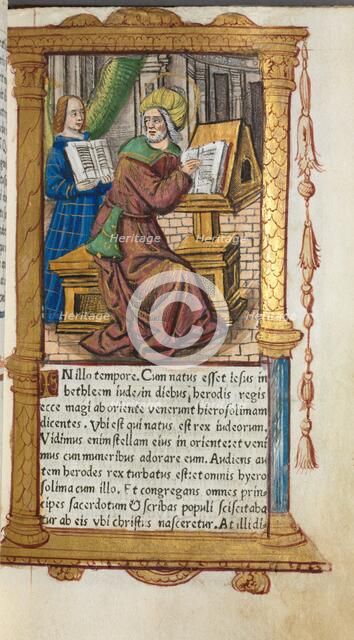 IN illo tempore. Cum natus esset iesus in
bethleem iude in diebus herodis regis
ecce magi ab oriente venerunt hierosolimam
dicentes. Vbi est qui natus est rex iudeorum.
Vidimus enim stellam eius in oriente: et veni
mus cum muneribus adorare eum. Audiens au
tem herodes rex turbatus est: et omnis hyero
solima cum illo. Et congregans omnes prin
cipes sacerdotum & scribas populi sciscitaba
tur ab eis vbi christus nasceretur. At illi di
Heritage
Heritage
Heritage
Heritage
Heritage
Heritage